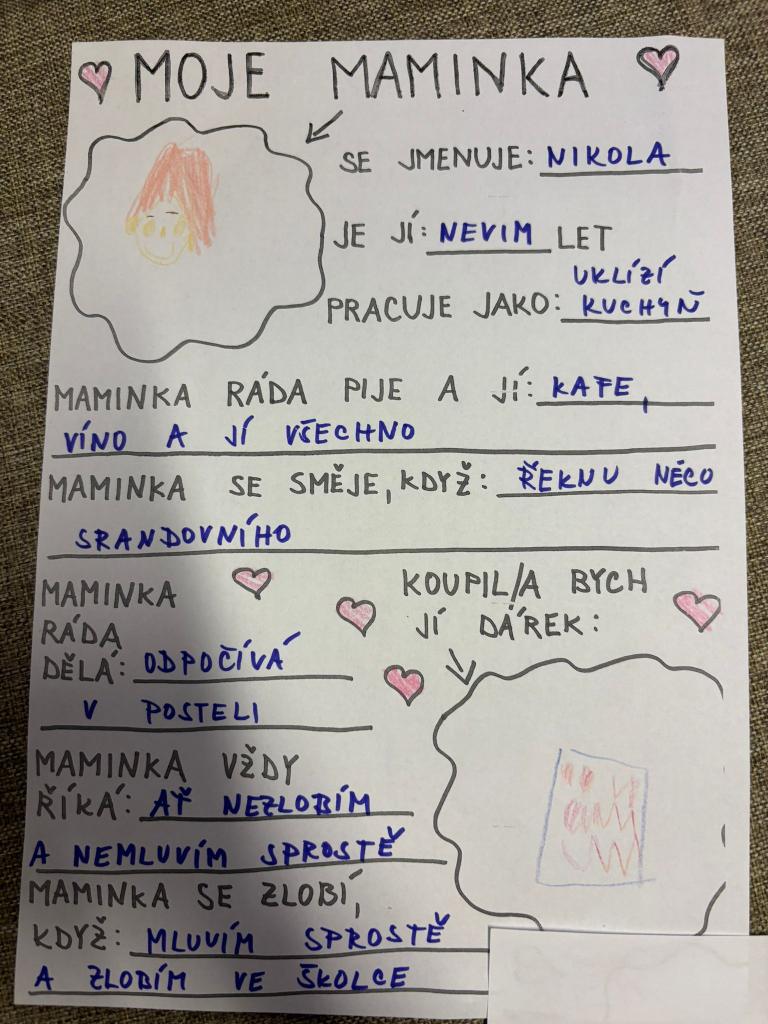 MOJE MAMINKA
SE JMENUJE: NIKOLA
JE JÍ: NEVIM LET
UKLÍZÍ
PRACUJE JAKO: KUCHYŇ
MAMINKA RÁDA PIJE A JÍ: KAFE,
VÍNO A JÍ VŠECHNO
MAMINKA SE SMĚJE, KDYŽ: ŘEKNU NĚCO
SRANDOVNÍHO
MAMINKA
RÁDA
DĚLÁ: ODPOČÍVÁ
V POSTELI
KOUPIL/A BYCH
JÍ DÁREK:
MAMINKA VŽDY
ŘÍKÁ: AŤ NEZLOBÍM
A NEMLUVÍM SPROSTĚ
MAMINKA SE ZLOBÍ,
KDYŽ: MLUVÍM SPROSTĚ
A ZLOBÍM VE ŠKOLCE